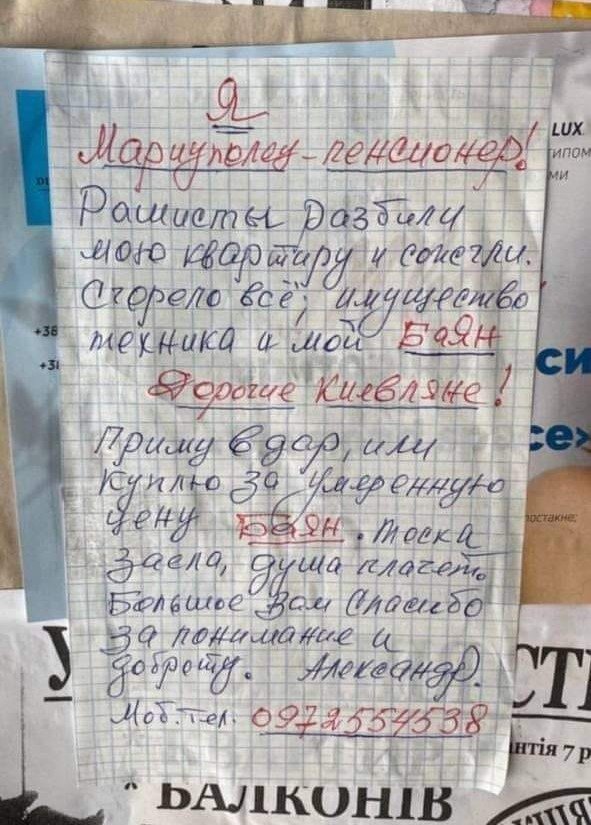 Я
Мариуполец-пенсионер!
Рашисты разбили
мою квартиру и сожгли.
Сгорело всё; имущество
техника и мой Баян
Дорогие Киевляне!
Приму в дар, или
куплю за умеренную
цену Баян. Тоска
заела, душа плачет.
Большое Вам Спасибо
за понимание и
доброту. Александр.
Моб. тел: 0972554538
LUX
типом
ми
+38
+38
си
се»
постакне;
У
СТ
нтія 7 р
БАЛКОНІВ
ЦІЯ